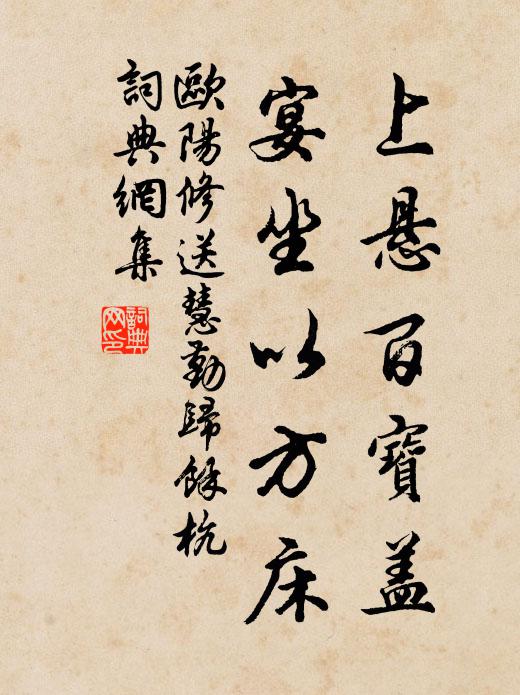 上悬百寶盖
宴坐以方床
歐陽修送慧勤歸餘杭
詞典網集
詞典
网印